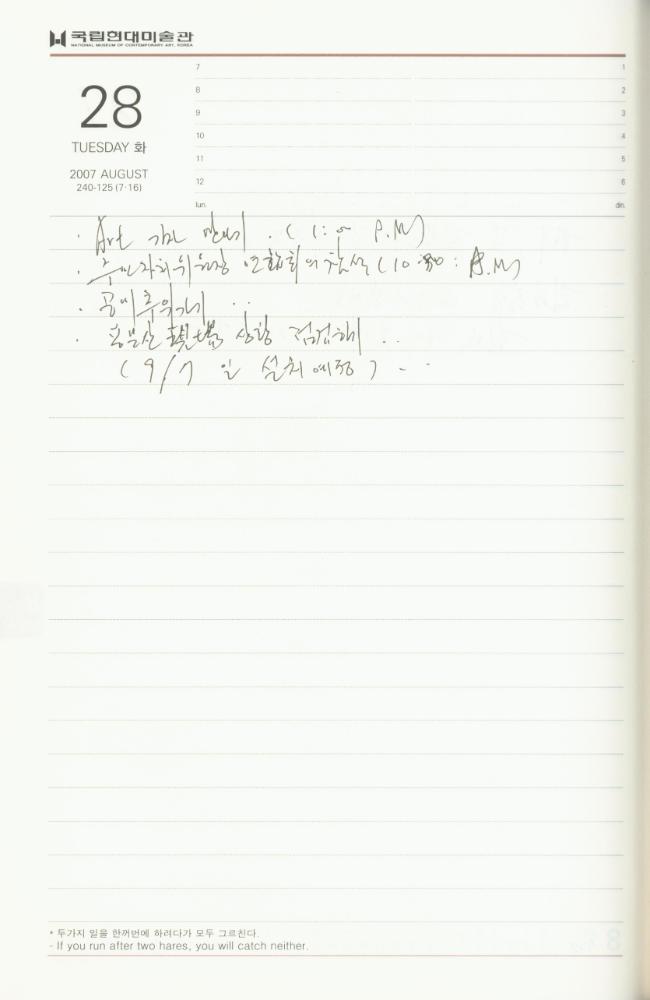 국립현대미술관
NATIONAL MUSEUM OF CONTEMPORARY ART, KOREA
28
TUESDAY 화
2007 AUGUST
240-125 (7·16)
7 1
8 2
9 3
10 4
11 5
12 6
lun. din.
· Art . ( 1:00 P.M)
· 주민자치위원장 회의 참석 (10:30 : A.M)
·
· 상황 점검해 ..
( 9/7 일 설치 예정 ) ..
* 두가지 일을 한꺼번에 하려다가 모두 그르친다.
- If you run after two hares, you will catch neither.